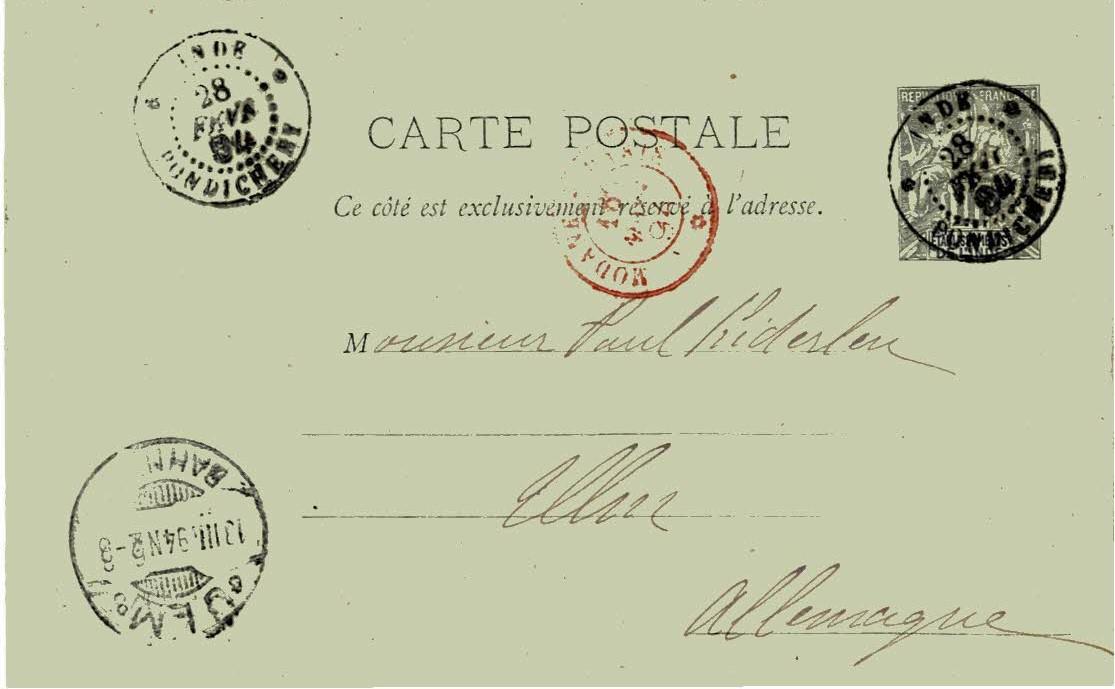 INDE
28
FEVR
94
PONDICHERY
REPUBLIQUE FRANCAISE
INDE
28
94
PONDICHERY
CARTE POSTALE
Ce côté est exclusivement réservé à l'adresse.
MODANE
94
ETABLISSEMENTS
DE L'INDE
Monsieur Paul Kiderlen
Ulm
Allemagne
BAHNH
13 III.94 N 2-3
ULM